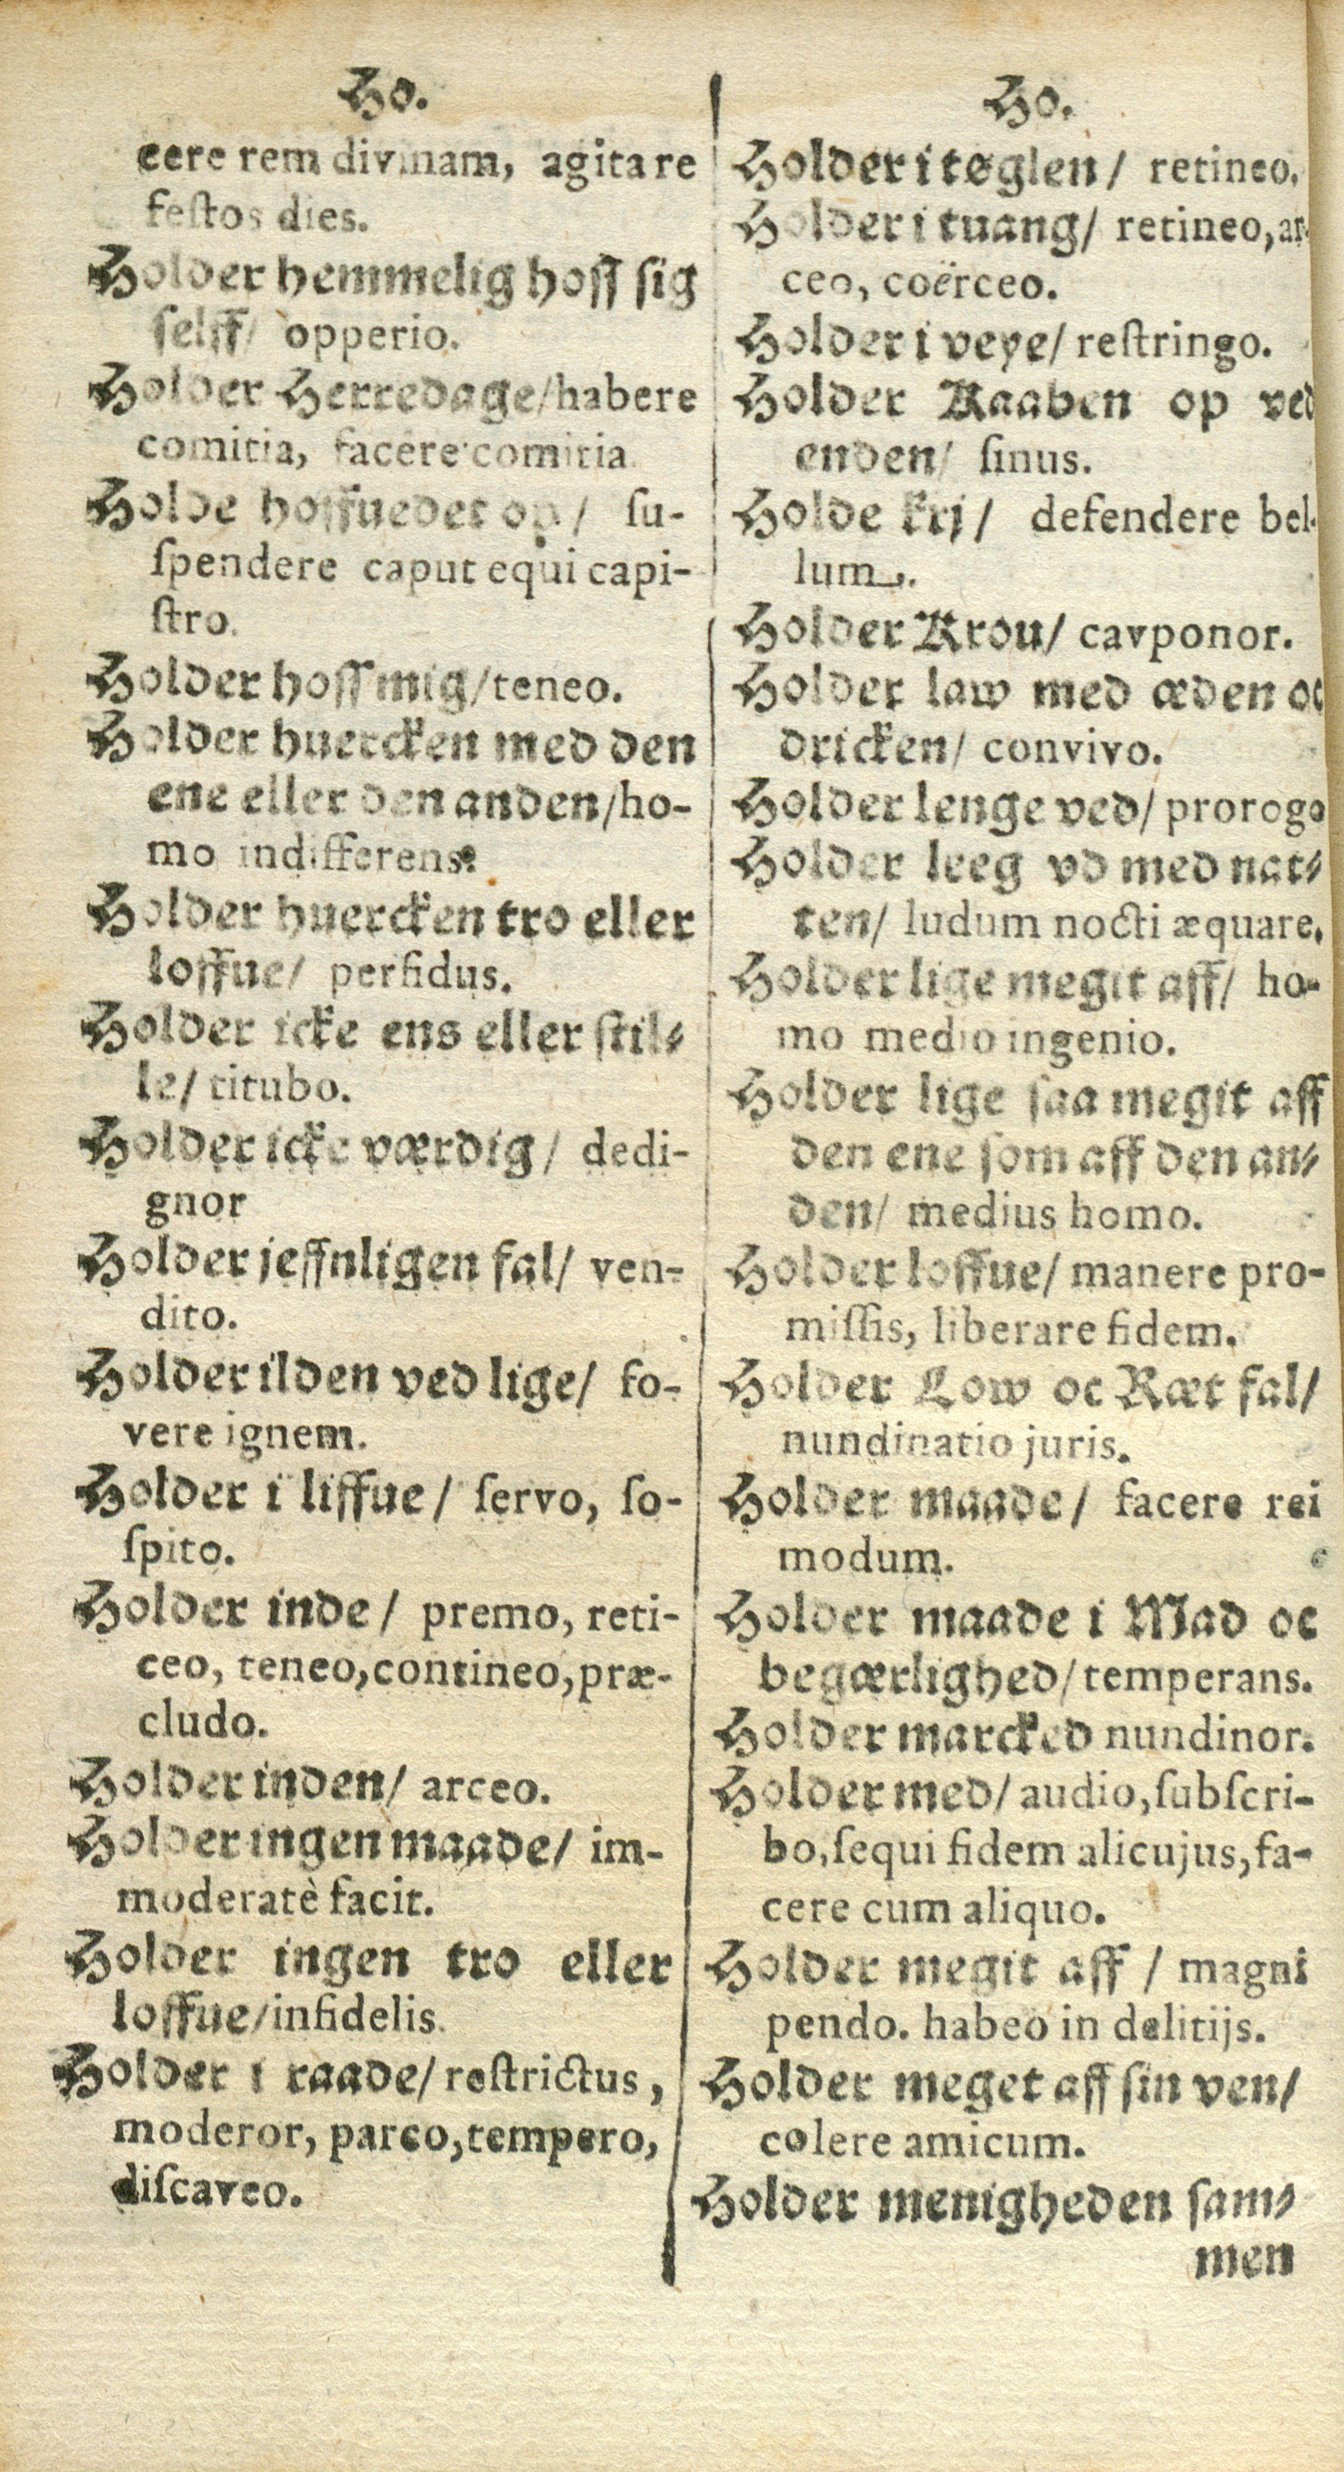 Ho.
cere rem divinam, agitare
feſtos dies.
Holder hemmelig hoſſ ſig
ſelff/ opperio.
Holder Herredage/habere
comitia, facere comitia.
Holde hoffuedet op/ ſu-
ſpendere caput equi capi-
ſtro.
Holder hoſſ mig/teneo.
Holder huercken med den
ene eller den anden/ho-
mo indifferens.
Holder huercken tro eller
loffue/ perfidus.
Holder icke ens eller ſtil-
le/ titubo.
Holder icke værdig/ dedi-
gnor
Holder jeffnligen fal/ ven-
dito.
Holder ilden ved lige/ fo-
vere ignem.
Holder i liffue/ ſervo, ſo-
ſpito.
Holder inde/ premo, reti-
ceo, teneo,contineo,præ-
cludo.
Holder inden/ arceo.
Holder ingen maade/ im-
moderatè facit.
Holder ingen tro eller
loffue/infidelis.
Holder i raade/reſtrictus,
moderor, parco,tempero,
diſcaveo.
Ho.
Holder i tøglen/ retineo.
Holder i tuang/ retineo,ar-
ceo, coërceo.
Holder i veye/ reſtringo.
Holder Kaaben op ved
enden/ ſinus.
Holde krj/ defendere bel-
lum.
Holder Krou/ cavponor.
Holder law med æden oc
dricken/ convivo.
Holder lenge ved/ prorogo
Holder leeg vd med nat-
ten/ ludum nocti æquare.
Holder lige megit aff/ ho-
mo medio ingenio.
Holder lige ſaa megit aff
den ene ſom aff den an-
den/ medius homo.
Holder loffue/ manere pro-
miſſis, liberare fidem.
Holder Low oc Ræt fal/
nundinatio juris.
Holder maade/ facere rei
modum.
Holder maade i Mad oc
begærlighed/temperans.
Holder marcked nundinor.
Holder med/ audio,ſubſcri-
bo,ſequi fidem alicujus,fa-
cere cum aliquo.
Holder megit aff / magni
pendo. habeo in delitijs.
Holder meget aff ſin ven/
colere amicum.
Holder menigheden ſam-
men